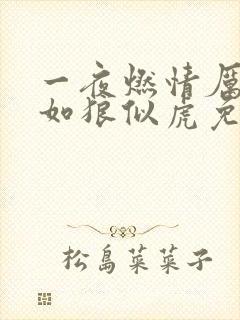 一夜燃情厲
如狼似虎免
松島菜菜子